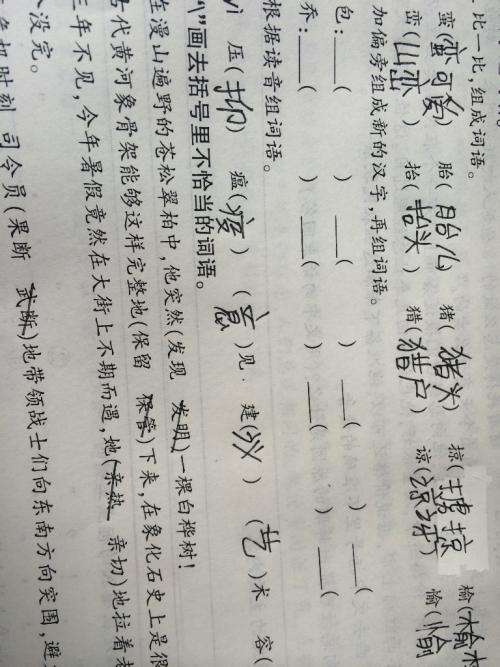 比一比，组成词语。
蛮(蛮可爱) 胎(胎儿) 猪(猪头) 掠(掳掠) 榆(榆
峦(山峦) 抬(抬头) 猎(猎户) 谅(谅讶) 愉(愉
加偏旁组成新的汉字，再组词语。
包：___( ) ___( ) ___( ) ___(
乔：___( ) ___( ) ___( ) ___(
根据读音组词语。
yì 压(抑) 瘟(疫) (意)见 建(议) (艺)术 容(
"\"画去括号里不恰当的词语。
在漫山遍野的苍松翠柏中，他突然(发现 发明)一棵白桦树！
古代黄河象骨架能够这样完整地(保留 保管)下来，在象化石史上是很
三年不见，今年暑假竟然在大街上不期而遇，她(亲热 亲切)地拉着
没完。
机时刻，司令员(果断 武断)地带领战士们向东南方向突围，避